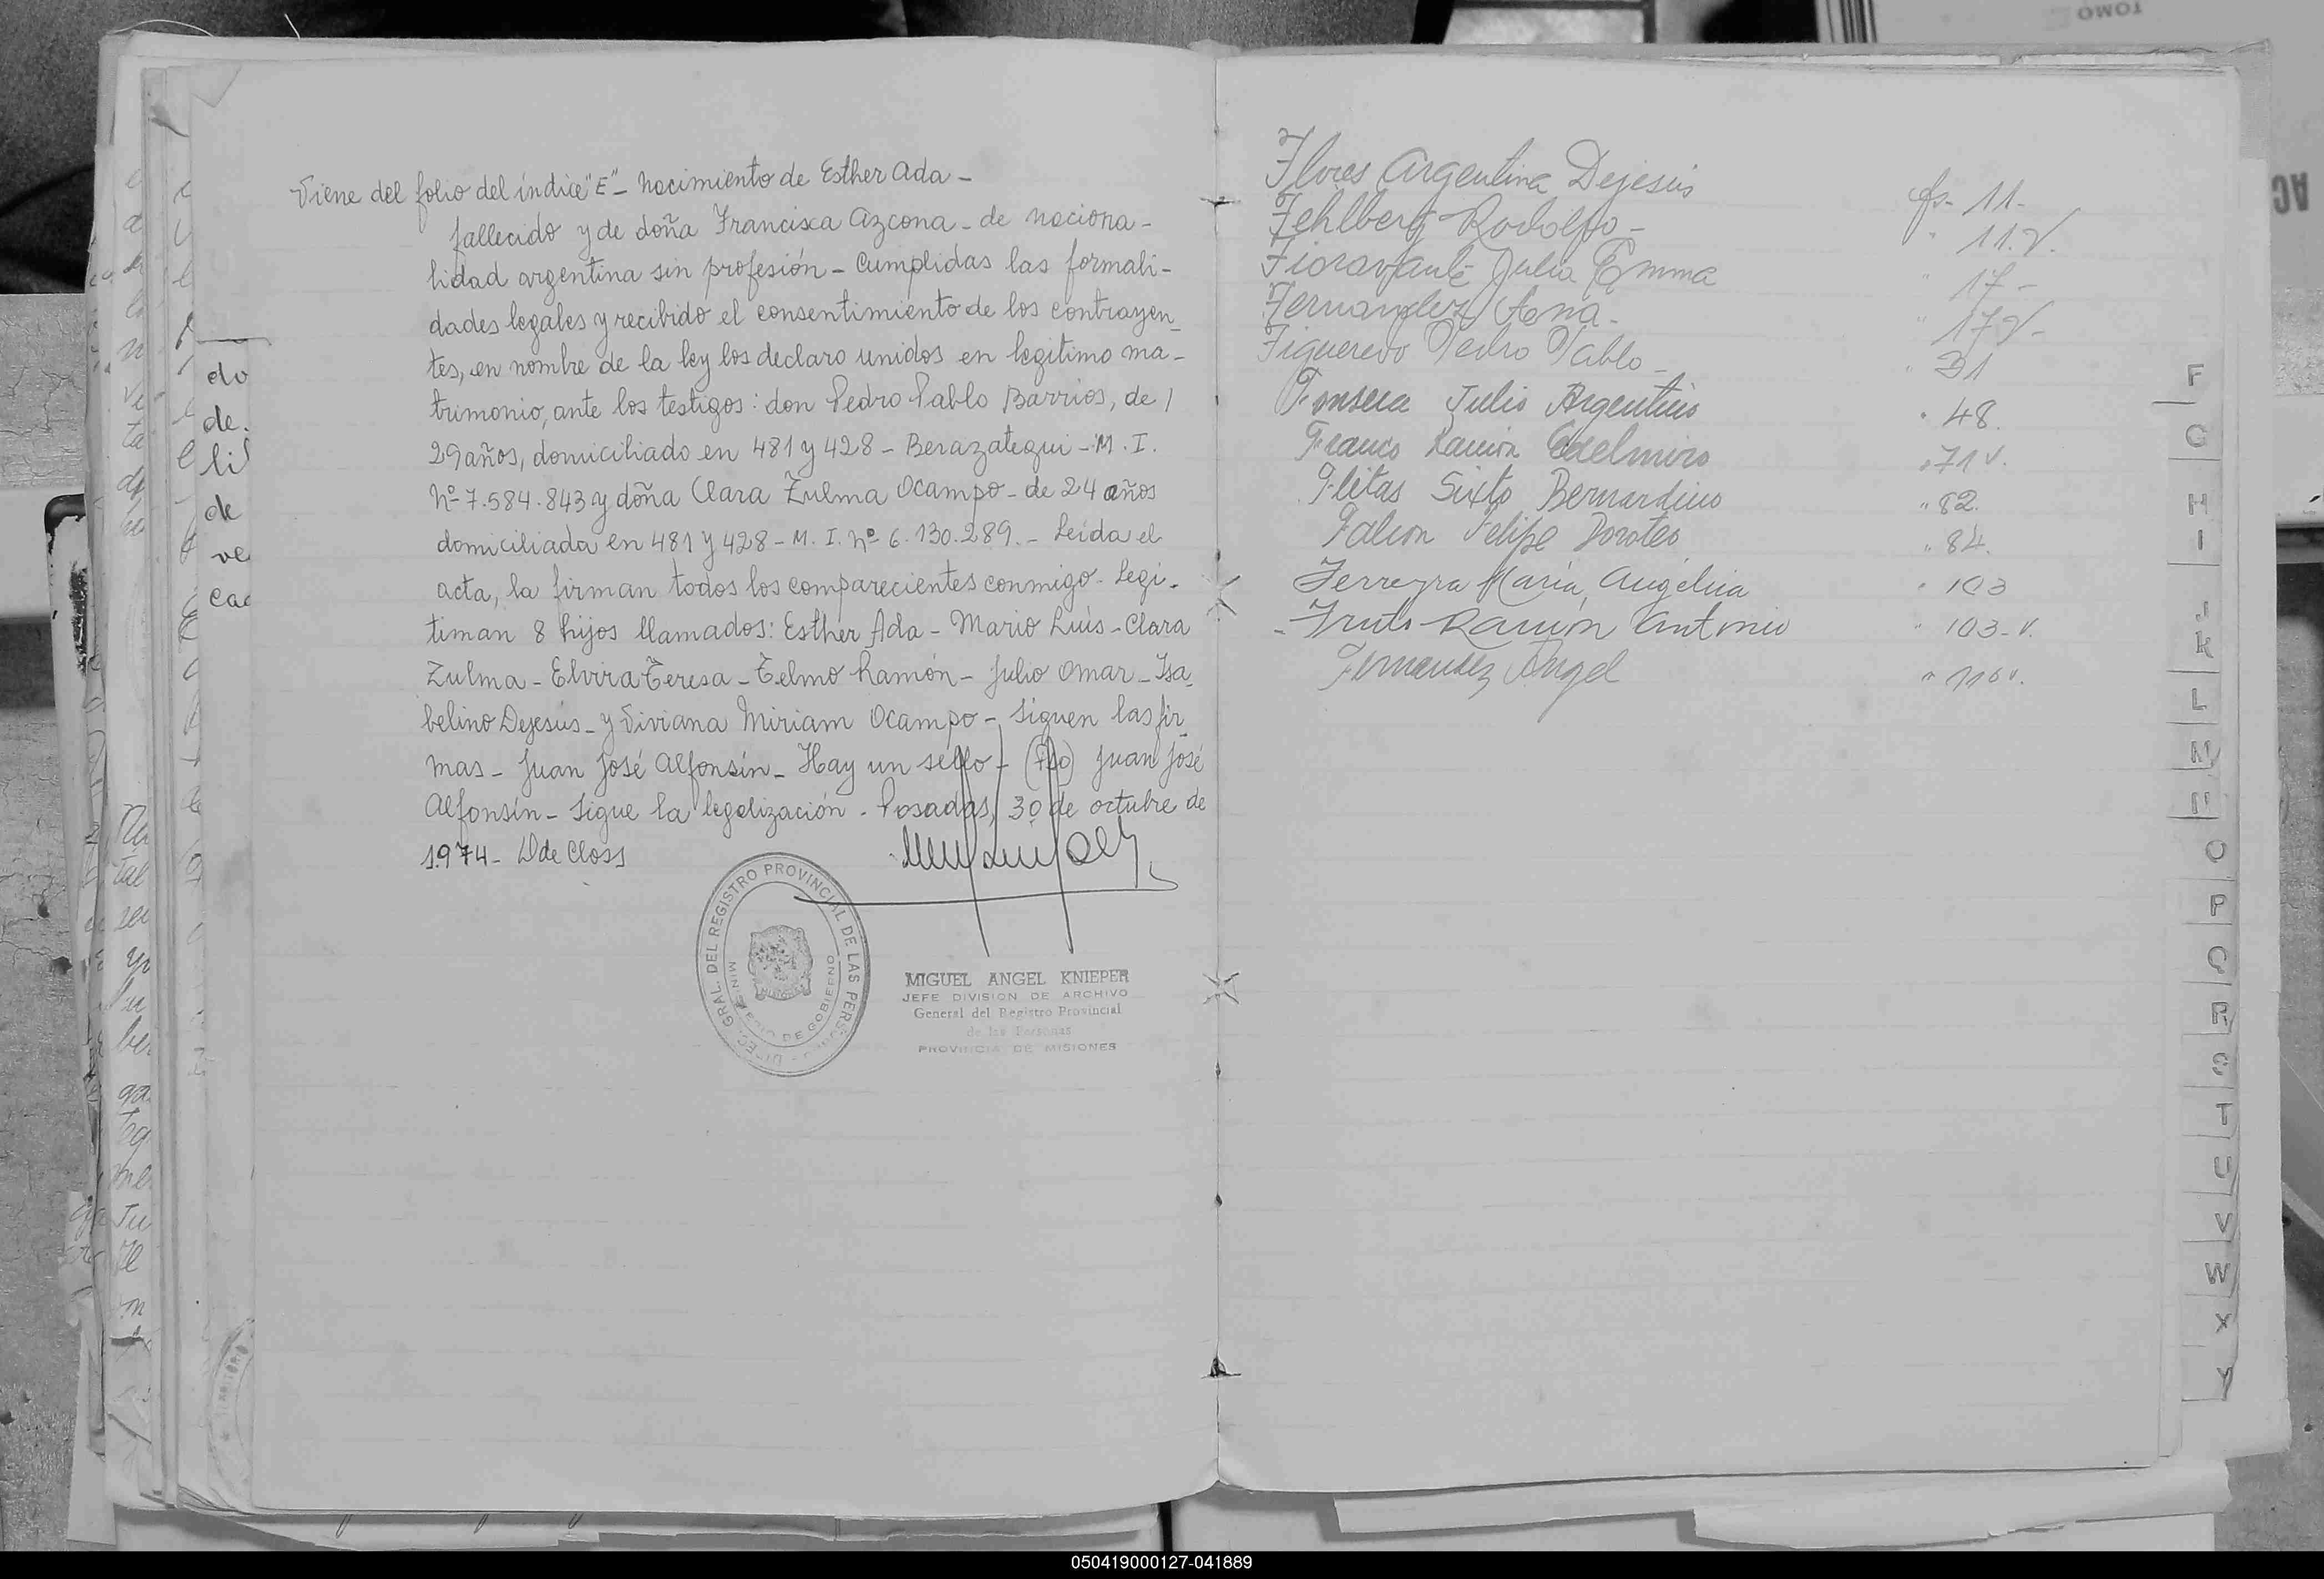 Viene del folio del índice "E" - Nacimiento de Esther Ada -
fallecido y de doña Francisca Azcona - de naciona-
lidad argentina sin profesión - Cumplidas las formali-
dades legales y recibido el consentimiento de los contrayen-
tes, en nombre de la ley los declaro unidos en legítimo ma-
trimonio, ante los testigos: don Pedro Pablo Barrios, de
29 años, domiciliado en 481 y 428 - Berazategui - M. I.
Nº 7.584.843 y doña Clara Zulma Ocampo - de 24 años
domiciliada en 481 y 428 - M. I. Nº 6.130.289. - Leída el
acta, la firman todos los comparecientes conmigo - Legi-
timan 8 hijos llamados: Esther Ada - Mario Luis - Clara
Zulma - Elvira Teresa - Telmo Ramón - Julio Omar - Isa-
belino Dejesús - y Viviana Miriam Ocampo - Siguen las fir-
mas - Juan José Alfonsín - Hay un sello - (Fdo) Juan José
Alfonsín - Sigue la legalización - Posadas, 30 de octubre de
1974 - D de Closs
GRAL. DEL REGISTRO PROVINCIAL DE LAS PERS
DE GOBIERNO
MIGUEL ANGEL KNIEPER
JEFE DIVISION DE ARCHIVO
General del Registro Provincial
de las Personas
PROVINCIA DE MISIONES
Flores Argentina Dejesús fs. 11.
Fehlberg Rodolfo - " 11.v.
Fioravante Julia Emma " 17 -
Fernandez Ana - " 17v -
Figueredo Pedro Pablo - " 31
Fonseca Julio Argentino " 48.
Franco Ramón Edelmiro " 71 v.
Fleitas Sixto Bernardino " 82.
Falcon Felipe Doroteo " 84.
Ferreyra María Angélica " 103
Frutos Ramón Antonio " 103-v.
Fernandez Angel " 116 v.
F
G
H
I
J
K
L
M
N
O
P
Q
R
S
T
U
V
W
X
Y
do
de.
li
de
ve
cac
TOMO
AC
050419000127-041889